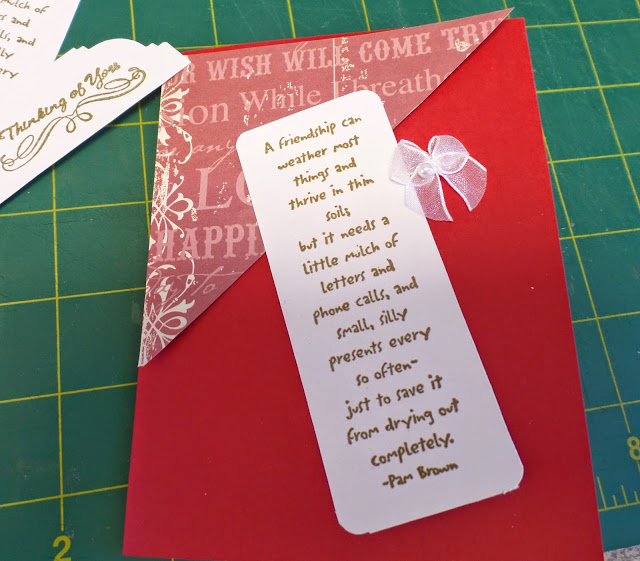 ulch of
rs and
ls, and
silly
every
Thinking of You
OR WISH WILL COME TRU
ion While I breathe
any
LO
HAPPI
A friendship can
weather most
things and
thrive in thin
soil;
but it needs a
little mulch of
letters and
phone calls, and
small, silly
presents every
so often-
just to save it
from drying out
completely.
-Pam Brown
2
8